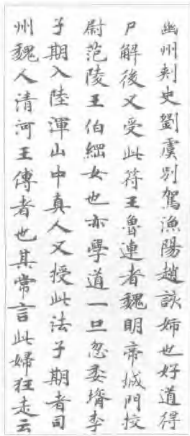 幽州刺史劉虞別駕漁陽趙該姊也好道得
尸解後又受此符王魯連者魏明帝城門挍
尉范陵王伯綱女也亦學道一旦忽委壻李
子期入陸渾山中真人又授此法子期者司
州魏人清河王傅者也其常言此婦狂走云